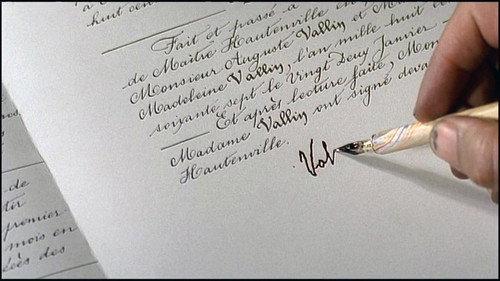 huit cen
Fait et passé à
de Maître Hautenville en
Monsieur Auguste Vallin et M
Madeleine Vallin, l'an mille huit c
soixante sept le Vingt Deux Janvier
Et après lecture faite, Mon
Madame Vallin ont signé deva
Hautenville.
Val
de
premier
mois en
des